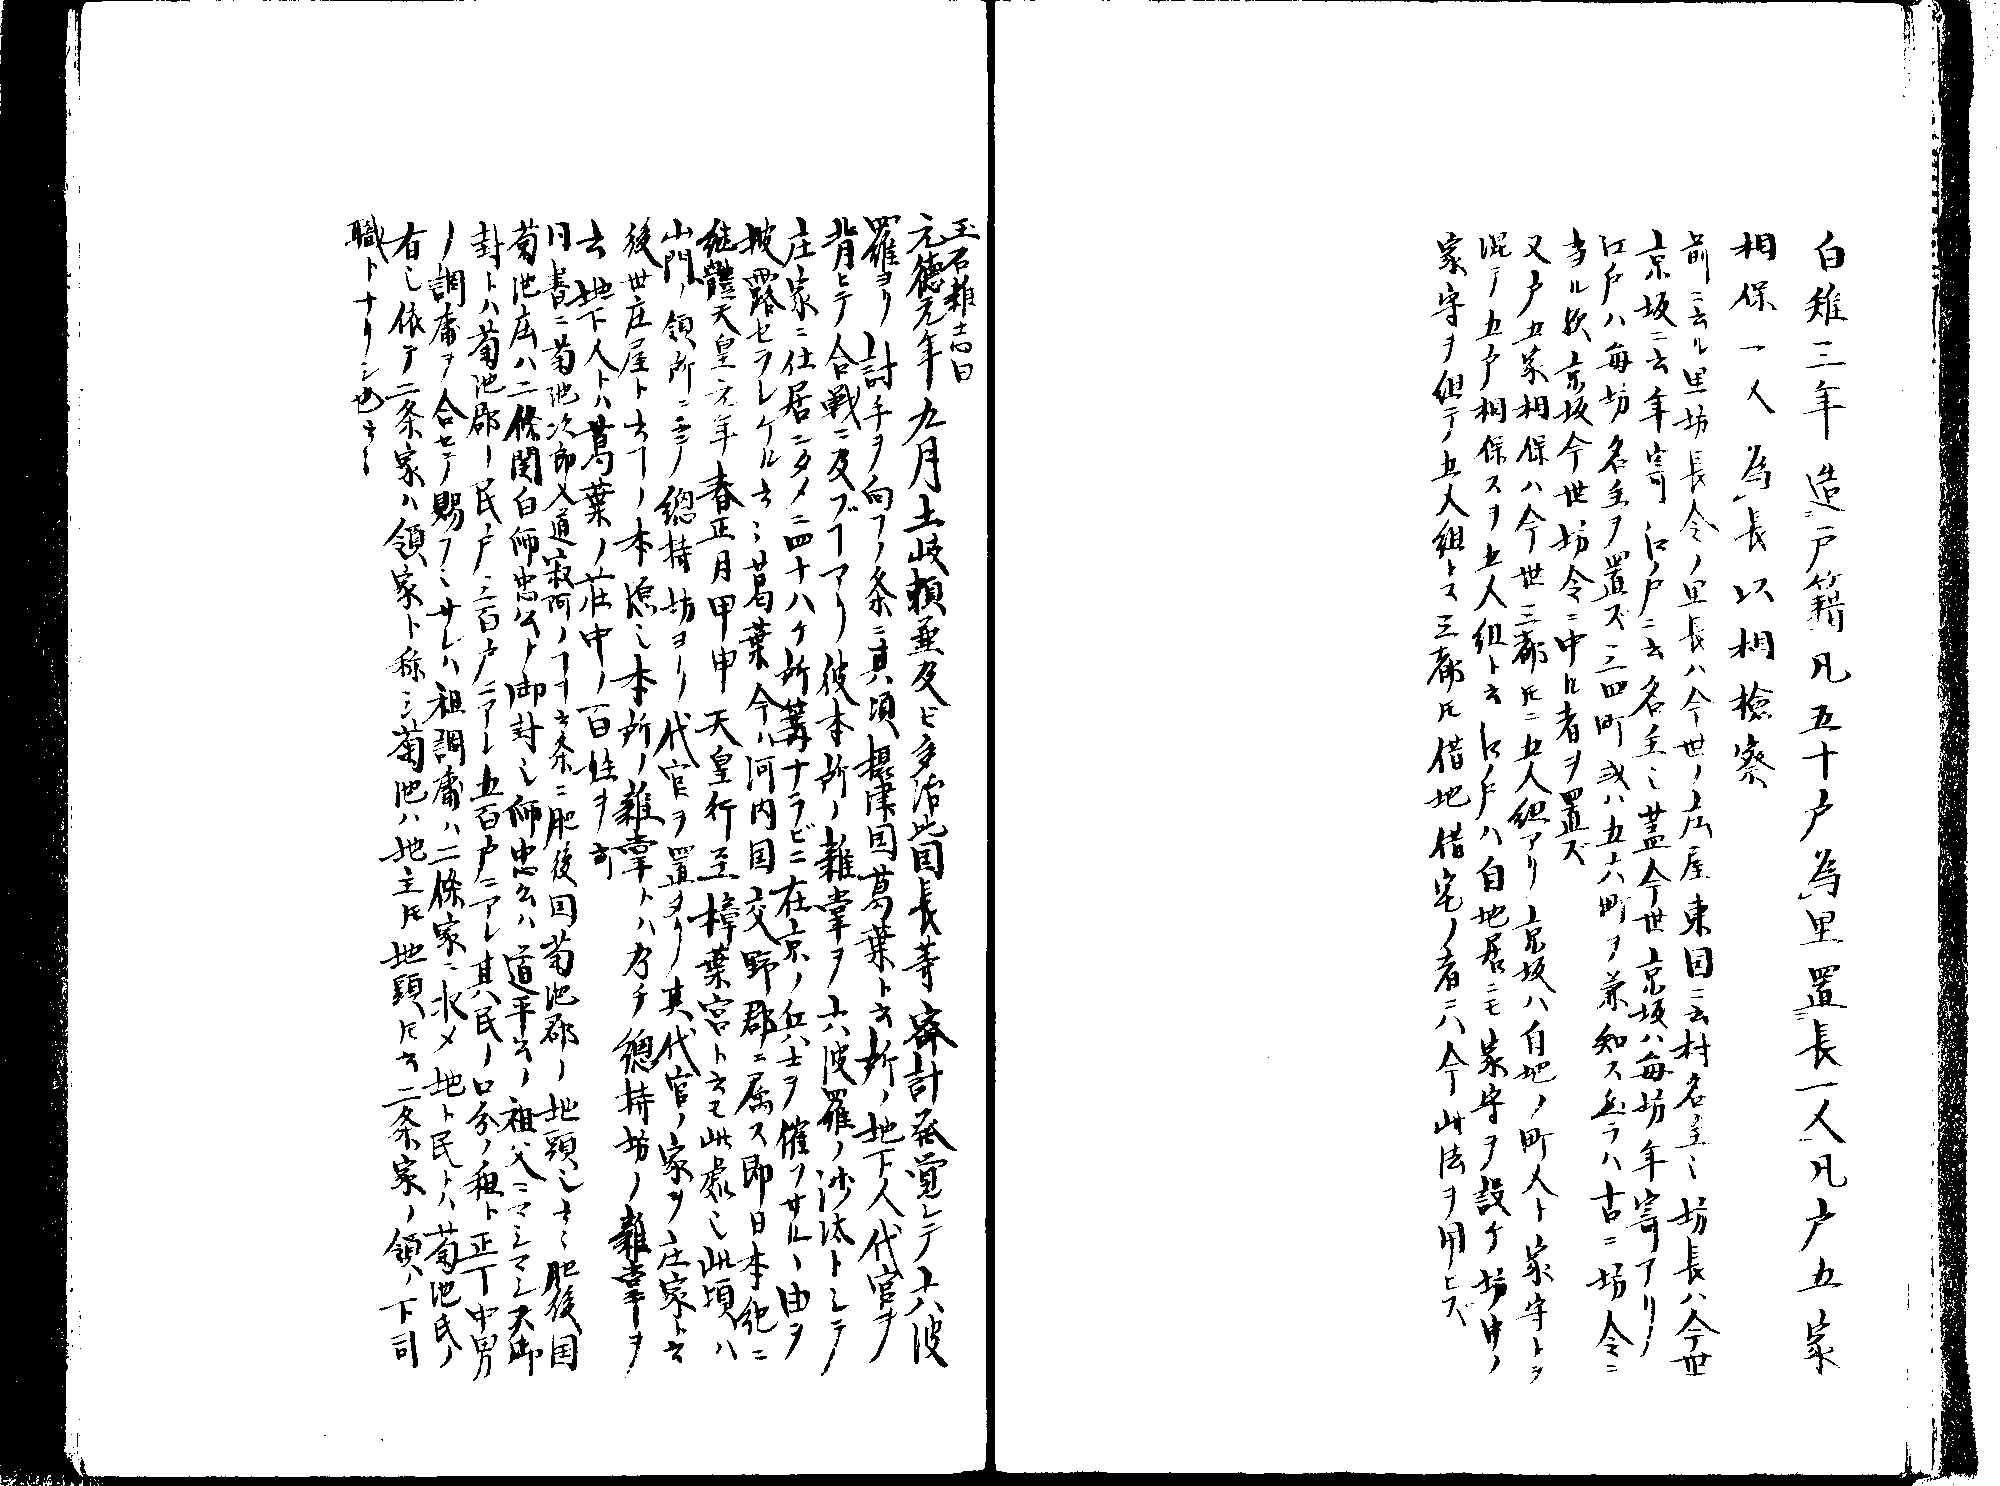 白雉三年造戸籍凡五十戸為里置長一人凡戸五家
相保一人為長以相檢察
前ニ云ル里坊長令ノ里長ハ今世ノ庄屋東国ニ云村名主也坊長ハ今世
京坂ニ云年寄江戸ニ云名主也蓋今世京坂ハ毎坊年寄アリ
江戸ハ毎坊名主ヲ置ズ三四町或ハ五六町ヲ兼知ス然ラハ古ニ坊令ニ
当ル欤京坂今世坊令ニ中ル者ヲ置ズ
又戸五家相保ハ今世三都トモニ五人組アリ京坂ハ自地ノ町人ト家守トヲ
混テ五戸相保スヲ五人組ト云江戸ハ自地居ニモ家守ヲ設ケ坊中ノ
家守ヲ組テ五人組トス三都トモ借地借宅ノ者ニハ今ノ此法ヲ用ヒズ
玉石雑志曰
元徳元年九月土岐頼兼及ヒ多治比国長等密計発覚シテ六波
羅ヨリ討手ヲ向フノ条ニ其頃摂津国葛葉ト云所ノ地下人代官ヲ
背ヒテ合戦ニ及ブコアリ彼本所ノ雑掌ヲ六波羅ノ沙汰トシテ
庄家ニ仕居ンタメニ四十八ケ所篝ナラビニ在京ノ兵士ヲ催フサルヽ由ヲ
披露セラレケル云々葛葉今ハ河内国交野郡ニ属ス即日本紀ニ
継體天皇元年春正月甲申天皇行至樟葉宮ト云モ此處也此頃ハ
山門ノ領所ニテ總持坊ヨリ代官ヲ置タリ其代官ノ家ヲ庄家ト云
後世庄屋ト云コノ本源也本所ノ雑掌トハ乃チ總持坊ノ雑掌ヲ
云地下人トハ葛葉ノ荘中ノ百姓ヲ云
同書ニ菊池次郎入道寂阿ノコヲ云条ニ肥後国菊池郡ノ地頭也云々肥後国
菊池庄ハ二條関白師忠公ノ御封也師忠公ハ道平公ノ祖父ニマシマシ又御
封トハ菊池郡ノ民戸三百戸ニアレ五百戸ニアレ其民ノ口分ノ租ト正丁中男
ノ調庸ヲ合セテ賜フ也サレハ租調庸ハ二條家ニ収メ地ト民トハ菊池氏ノ
有也依テ二条家ハ領家ト称シ菊池ハ地主トモ地頭トモ云二条家ノ領ノ下司
職トナリシ也云々